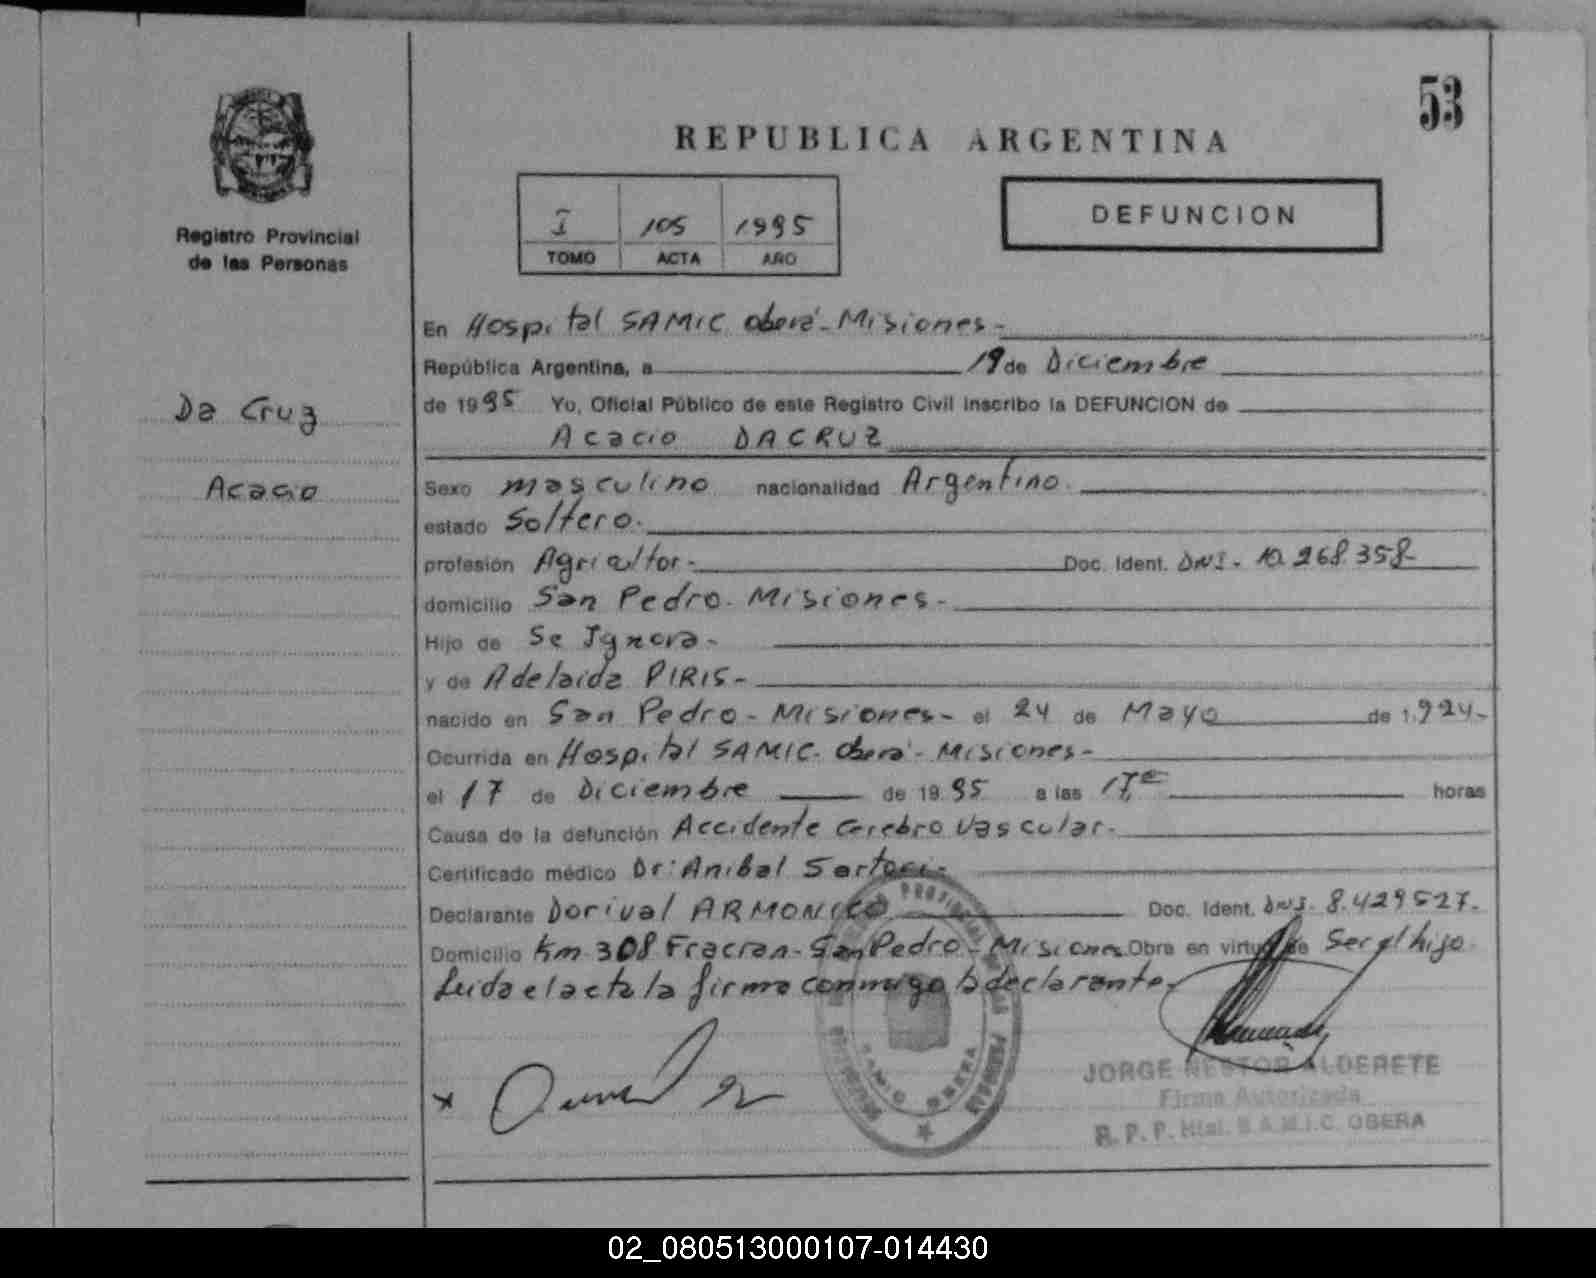 53
REPUBLICA ARGENTINA
DEFUNCION
I 105 1995
TOMO ACTA AÑO
Registro Provincial
de las Personas
Da Cruz
Acacio
En Hospital SAMIC Oberá - Misiones -
República Argentina, a 19 de Diciembre
de 1995 Yo, Oficial Público de este Registro Civil inscribo la DEFUNCION de
Acacio DACRUZ
Sexo masculino nacionalidad Argentino.
estado Soltero.
profesión Agricultor - Doc. Ident. DNI - 10.268.358
domicilio San Pedro - Misiones -
Hijo de Se Ignora -
y de Adelaida PIRIS -
nacido en San Pedro - Misiones - el 24 de Mayo de 1.924 -
Ocurrida en Hospital SAMIC - Oberá - Misiones -
el 17 de Diciembre de 1995 a las 17, horas
Causa de la defunción Accidente Cerebro Vascular -
Certificado médico Dr: Anibal Sartori -
Declarante Dorival ARMONICO Doc. Ident. DNI - 8.429527 -
Domicilio Km 308 Fracran - San Pedro - Misiones Obra en virtud de Ser el hijo
Leida el acta la firma conmigo la declarante -
JORGE NESTOR ALDERETE
Firma Autorizada
R. P. P. Htal. S.A.M.I.C. OBERA
02_080513000107-014430